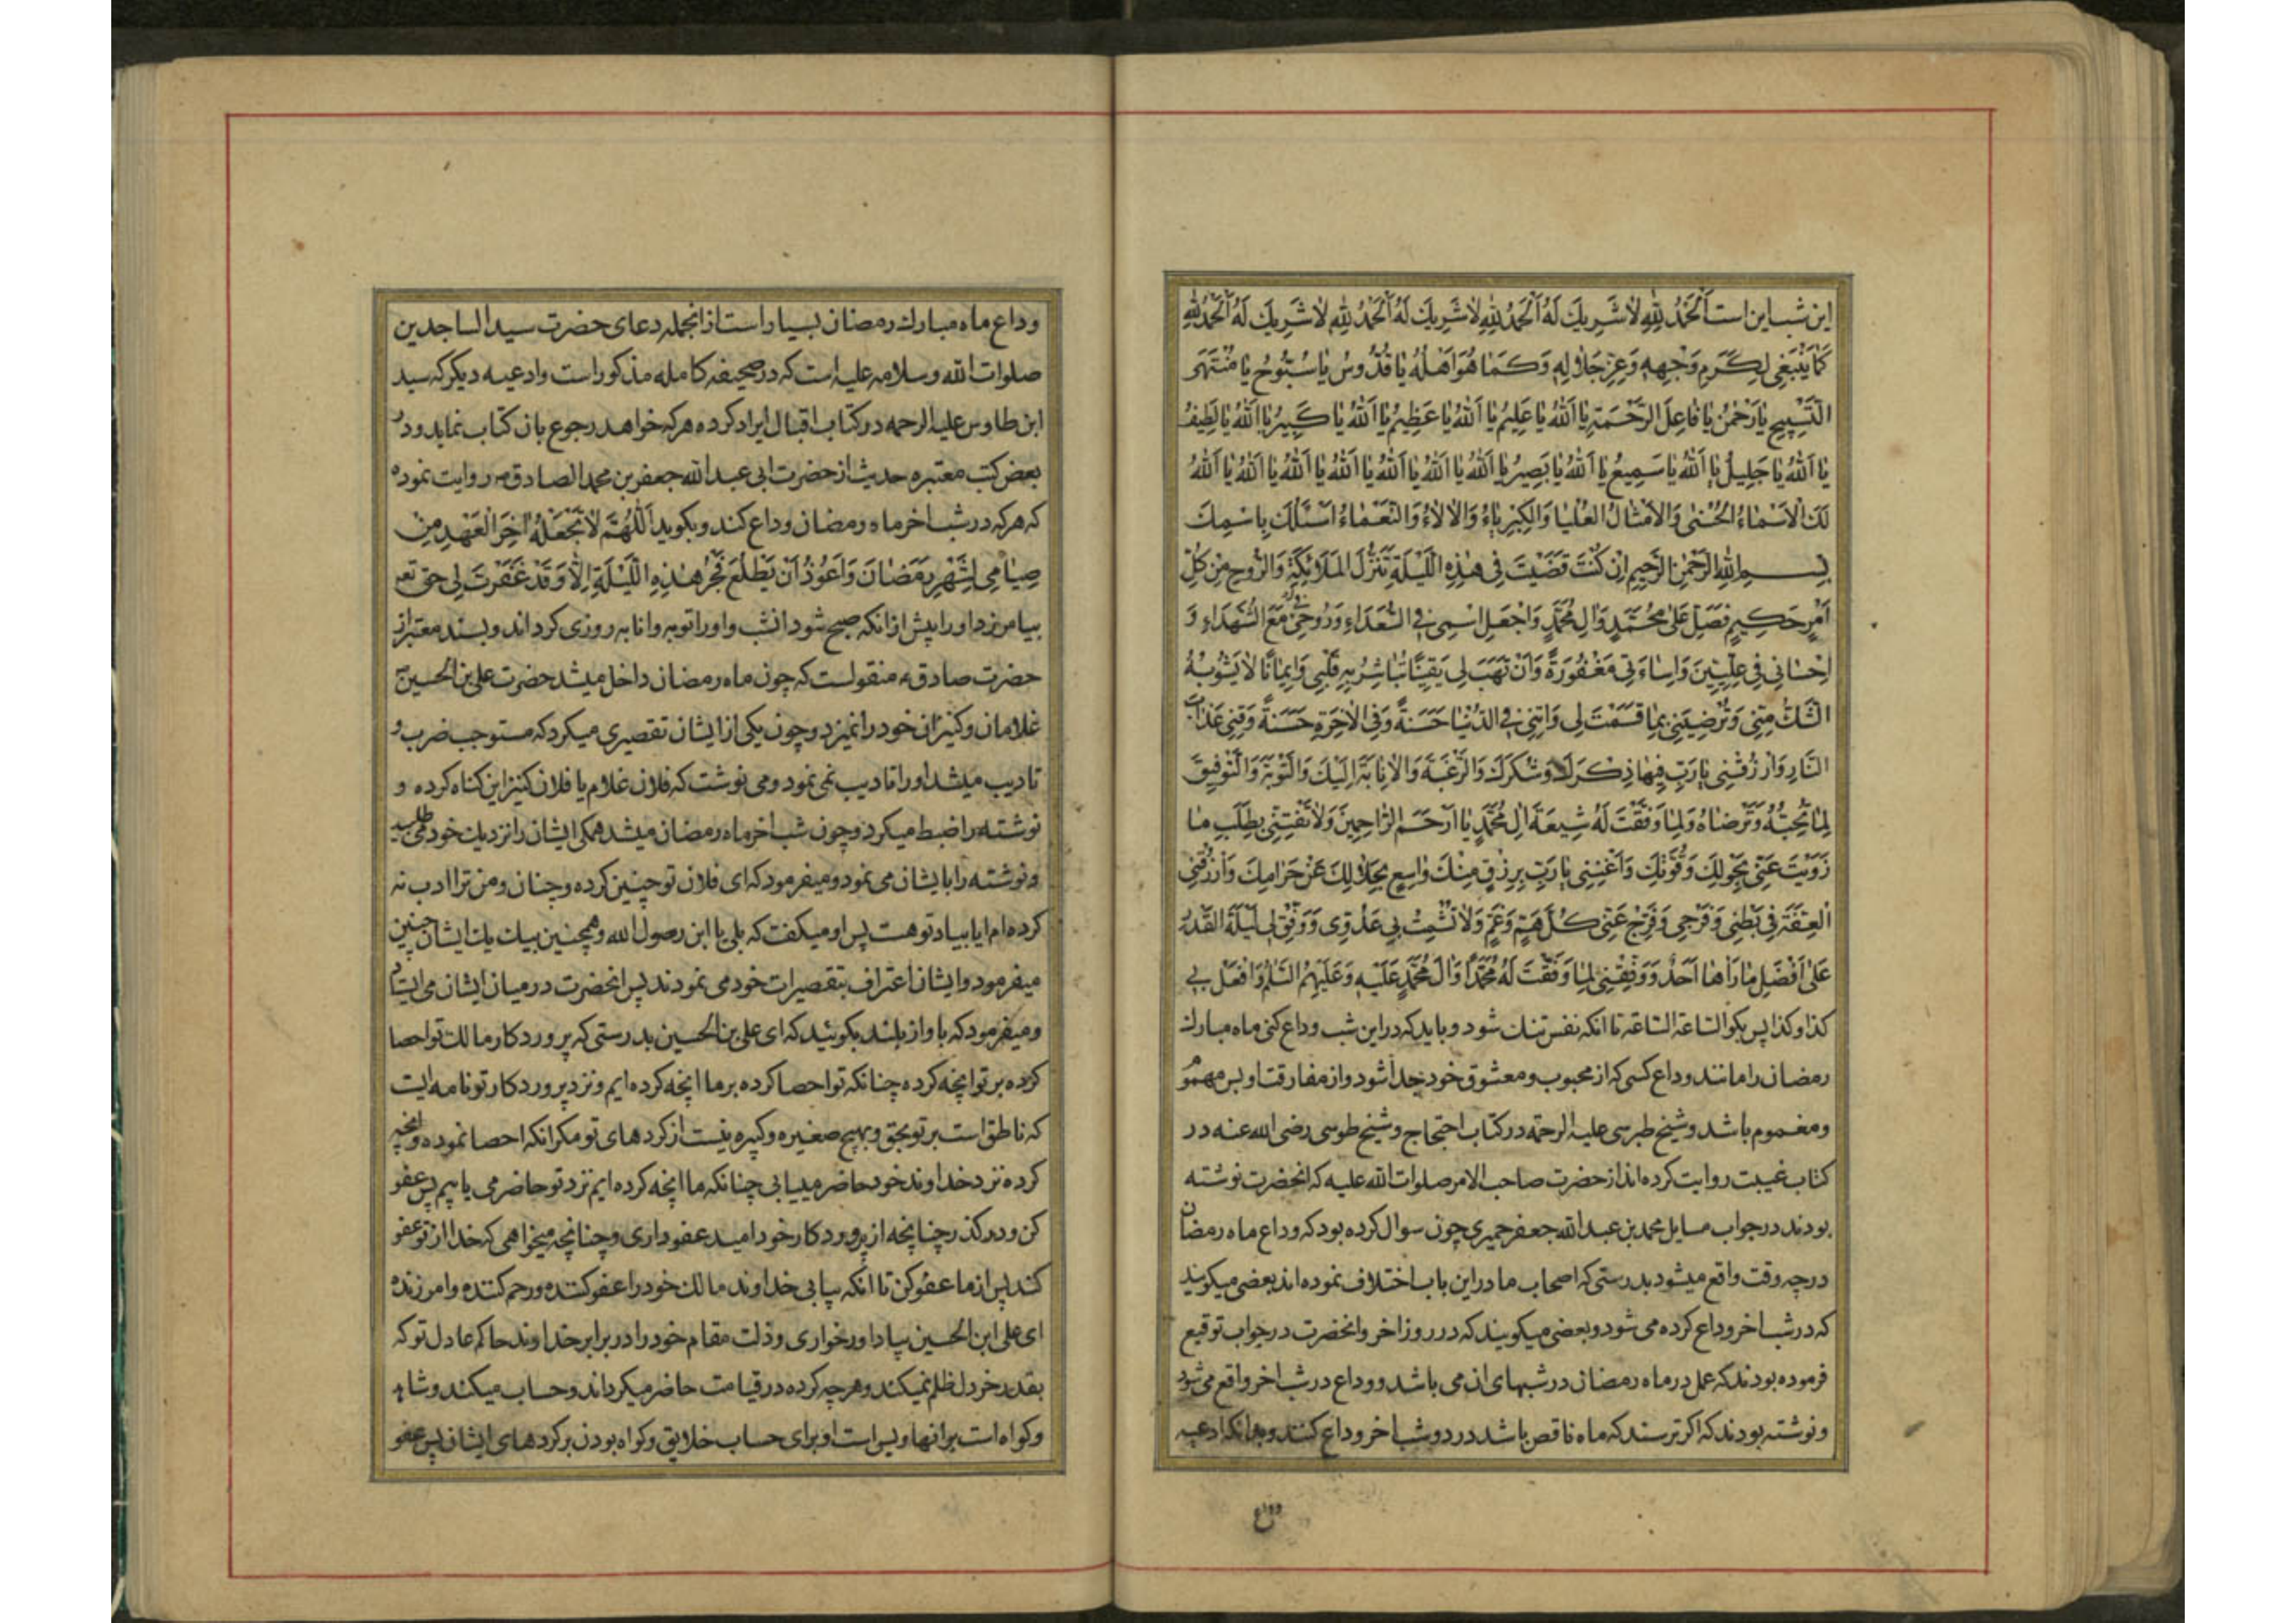 این شب این است اَلْحَمْدُ لِلّٰهِ لاٰ شَرِیكَ لَهُ اَلْحَمْدُ لِلّٰهِ لاٰ شَرِیكَ لَهُ اَلْحَمْدُ لِلّٰهِ لاٰ شَرِیكَ لَهُ اَلْحَمْدُ لِلّٰهِ
كَمٰا یَنْبَغِی لِكَرَمِ وَجْهِهِ وَعِزِّ جَلاٰلِهِ وَكَمٰا هُوَ اَهْلُهُ یٰا قُدُّوسُ یٰا سُبُّوحُ یٰا مُنْتَهَى
التَّسْبِیحِ یٰا رَحْمٰنُ یٰا فٰاعِلَ الرَّحْمَةِ یٰا اَللّٰهُ یٰا عَلِیمُ یٰا اَللّٰهُ یٰا عَظِیمُ یٰا اَللّٰهُ یٰا كَبِیرُ یٰا اَللّٰهُ یٰا لَطِیفُ
یٰا اَللّٰهُ یٰا جَلِیلُ یٰا اَللّٰهُ یٰا سَمِیعُ یٰا اَللّٰهُ یٰا بَصِیرُ یٰا اَللّٰهُ یٰا اَللّٰهُ یٰا اَللّٰهُ یٰا اَللّٰهُ یٰا اَللّٰهُ یٰا اَللّٰهُ یٰا اَللّٰهُ
لَكَ الْاَسْمٰاءُ الْحُسْنٰى وَالْاَمْثٰالُ الْعُلْیٰا وَالْكِبْرِیٰاءُ وَالْاٰلاٰءُ وَالنَّعْمٰاءُ اَسْئَلُكَ بِاسْمِكَ
بِسْمِ اللّٰهِ الرَّحْمٰنِ الرَّحِیمِ اِنْ كُنْتَ قَضَیْتَ فِی هٰذِهِ اللَّیْلَةِ تَنَزُّلَ الْمَلاٰئِكَةِ وَالرُّوحِ مِنْ كُلِّ
اَمْرٍ حَكِیمٍ فَصَلِّ عَلٰى مُحَمَّدٍ وَاٰلِ مُحَمَّدٍ وَاجْعَلْ اسْمِی فِی السُّعَدٰاءِ وَرُوحِی مَعَ الشُّهَدٰاءِ وَ
اِحْسٰانِی فِی عِلِّیِّینَ وَاِسٰاءَتِی مَغْفُورَةً وَاَنْ تَهَبَ لِی یَقِینًا تُبٰاشِرُ بِهِ قَلْبِی وَاِیمٰانًا لاٰ یَشُوبُهُ
الشَّكُّ مِنِّی وَتُرْضِیَنِی بِمٰا قَسَمْتَ لِی وَاٰتِنِی فِی الدُّنْیٰا حَسَنَةً وَفِی الْاٰخِرَةِ حَسَنَةً وَقِنِی عَذٰابَ
النّٰارِ وَارْزُقْنِی یٰا رَبِّ فِیهٰا ذِكْرَكَ وَشُكْرَكَ وَالرَّغْبَةَ وَالْاِنٰابَةَ اِلَیْكَ وَالتَّوْبَةَ وَالتَّوْفِیقَ
لِمٰا تُحِبُّهُ وَتَرْضٰاهُ وَلِمٰا وَفَّقْتَ لَهُ شِیعَةَ اٰلِ مُحَمَّدٍ یٰا اَرْحَمَ الرّٰاحِمِینَ وَلاٰ تَفْتِنِّی بِطَلَبِ مٰا
زَوَیْتَ عَنِّی بِحَوْلِكَ وَقُوَّتِكَ وَاَغْنِنِی یٰا رَبِّ بِرِزْقٍ مِنْكَ وٰاسِعٍ بِحَلاٰلِكَ عَنْ حَرٰامِكَ وَارْزُقْنِی
الْعِفَّةَ فِی بَطْنِی وَفَرْجِی وَفَرِّجْ عَنِّی كُلَّ هَمٍّ وَغَمٍّ وَلاٰ تُشْمِتْ بِی عَدُوِّی وَوَفِّقْ لِی لَیْلَةَ الْقَدْرِ
عَلٰى اَفْضَلِ مٰا رَاٰهٰا اَحَدٌ وَوَفِّقْنِی لِمٰا وَفَّقْتَ لَهُ مُحَمَّدًا وَاٰلَ مُحَمَّدٍ عَلَیْهِ وَعَلَیْهِمُ السَّلٰمُ وَافْعَلْ بِی
كذا وكذا پس بكو الساعة الساعة تا انكه نفس تنك شود و باید كه در این شب وداع كنی ماه مبارك
رمضان را مانند وداع كسی كه از محبوب و معشوق خود جدا شود و از مفارقت او بس مهموم
و مغموم باشد و شیخ طبرسی علیه الرحمه در كتاب احتجاج و شیخ طوسی رضی الله عنه در
كتاب غیبت روایت كرده اند از حضرت صاحب الامر صلوات الله علیه كه انحضرت نوشته
بودند در جواب مسایل محمد بن عبد الله جعفر حمیری چون سوال كرده بود كه وداع ماه رمضان
در چه وقت واقع میشود بدرستی كه اصحاب ما در این باب اختلاف نموده اند بعضی میكویند
كه در شب اخر وداع كرده می شود و بعضی میكویند كه در روز اخر و انحضرت در جواب توقیع
فرموده بودند كه عمل در ماه رمضان در شبهای ان می باشد و وداع در شب اخر واقع می شود
و نوشته بودند كه اكر ترسند كه ماه ناقص باشد در دو شب اخر وداع كنند و بدانكه ادعیه
وداع
وداع ماه مبارك رمضان بسیار است از انجمله دعای حضرت سید الساجدین
صلوات الله و سلامه علیه است كه در صحیفه كامله مذكور است و ادعیه دیكر كه سید
ابن طاوس علیه الرحمه در كتاب اقبال ایراد كرده هركه خواهد رجوع بان كتاب نماید و در
بعض كتب معتبره حدیث از حضرت ابی عبد الله جعفر بن محمد الصادق ص روایت نموده
كه هركه در شب اخر ماه رمضان وداع كند و بكوید اَللّٰهُمَّ لاٰ تَجْعَلْهُ اٰخِرَ الْعَهْدِ مِنْ
صِیٰامِی لِشَهْرِ رَمَضٰانَ وَاَعُوذُ اَنْ یَطْلُعَ فَجْرُ هٰذِهِ اللَّیْلَةِ اِلاّٰ وَقَدْ غَفَرْتَ لِی حق تعـ
بیامرزد او را پیش از انكه صبح شود انشب و او را توبه و انابه روزی كرداند و بسند معتبر از
حضرت صادق ع منقولست كه چون ماه رمضان داخل میشد حضرت علی بن الحسین ع
غلامان و كنیزان خود را نمیزد و چون یكی از ایشان تقصیری میكرد كه مستوجب ضرب و
تادیب میشد او را تادیب نمی نمود و می نوشت كه فلان غلام یا فلان كنیز این كناه كرده و
نوشته را ضبط میكرد و چون شب اخر ماه رمضان میشد همكی ایشان را نزدیك خود می طلبید
و نوشته را بایشان می نمود و میفرمود كه ای فلان تو چنین كرده و چنان و من ترا ادب نه
كرده ام ایا بیاد تو هست پس او میكفت كه بلی یا ابن رسول الله و همچنین بیك یك ایشان چنین
میفرمود و ایشان اعتراف بتقصیرات خود می نمودند پس انحضرت در میان ایشان می ایستاد
و میفرمود كه با واز بلند بكوئید كه ای علی بن الحسین بدرستی كه پروردكار ما لك تو احصا
كرده بر تو انچه كرده چنانكه تو احصا كرده بر ما انچه كرده ایم و نزد پروردكار تو نامه ایست
كه ناطق است بر تو بحق و بهیچ صغیره و كبیره نیست از كردهای تو مكر انكه احصا نموده و انچه
كرده نزد خداوند خود حاضر مییابی چنانكه ما انچه كرده ایم نزد تو حاضر می یابیم پس عفو
كن و در كذر چنانچه از پروردكار خود امید عفو داری و چنانچه میخواهی كه خدا از تو عفو
كند پس از ما عفو كن تا انكه بیابی خداوند مالك خود را عفو كننده و رحم كننده و امرزنده
ای علی ابن الحسین بیاد اور خواری و ذلت مقام خود را در برابر خداوند حاكم عادل تو كه
بقدر خردل ظلم نمیكند و هرچه كرده در قیامت حاضر میكرداند و حساب میكند و شاهد
و كواه است بر انها و بس است او برای حساب خلایق و كواه بودن بر كردهای ایشان پس عفو